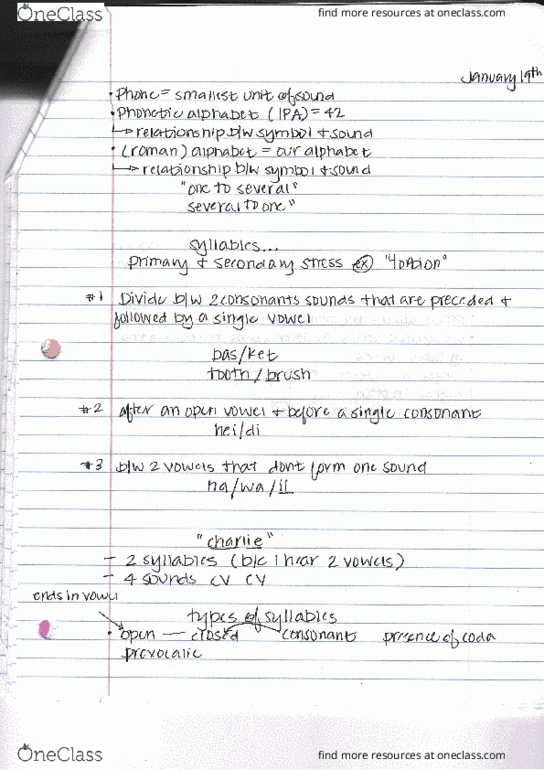 OneClass
find more resources at oneclass.com
January 19th
• Phone = smallest unit of sound
• Phonetic alphabet (IPA) = 42
↳ relationship b/w symbol + sound
• (roman) alphabet = our alphabet
↳ relationship b/w symbol + sound
"one to several"
several to one"
syllabics...
primary + secondary stress ex
#1 Divide b/w 2 consonants sounds that are preceded + followed by a single vowel
bas/ket
tooth/brush
#2 after an open vowel + before a single consonant
hei/di
#3 b/w 2 vowels that dont form one sound
ha/wa/ii
"charlie"
- 2 syllabics (b/c I hear 2 vowels)
- 4 sounds CV CV
ends in vowel
types of syllabics
• open — closed consonant presence of coda
prevocalic
OneClass
find more resources at oneclass.com